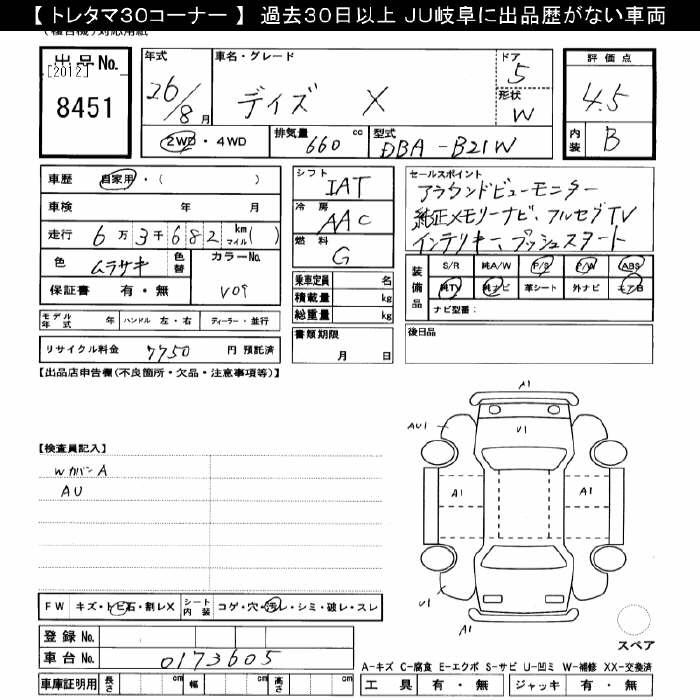 【トレタマ30コーナー】 過去30日以上 JU岐阜に出品歴がない車両
出品No. [2012] 8451
年式 26/8月
車名・グレード デイズ X
ドア 5
形状 W
評価点 4.5
内装 B
2WD・4WD
排気量 660 cc
型式 DBA-B21W
車歴 自家用・( )
車検 年 月
走行 6万3千682 km マイル( )
色 ムラサキ 色替 カラーNo. V09
保証書 有・無
モデル年式 年 ハンドル 左・右 ディーラー・並行
リサイクル料金 7750 円 預託済
シフト IAT
冷房 AAC
燃料 G
乗車定員 名
積載量 kg
総重量 kg
書類期限 月 日
セールスポイント
アラウンドビューモニター
純正メモリーナビ、フルセグTV
インテリキー、プッシュスタート
装備品 S/R 純A/W P/S P/W ABS
純TV 純ナビ 革シート 外ナビ エアB
ナビ型番:
後日品
【出品店申告欄(不良箇所・欠品・注意事項等)】
【検査員記入】
Wカバン A
AU
A1
AU1
U1
A1
A1
U1
A1
スペア
FW キズ・トビ石・割レX シート内装 コゲ・穴・汚レ・シミ・破レ・スレ
登録No.
車台No. 0173605
車庫証明用 長さ cm 幅 cm 高さ cm
A-キズ C-腐食 E-エクボ S-サビ U-凹ミ W-補修 XX-交換済
工具 有・無 ジャッキ 有・無